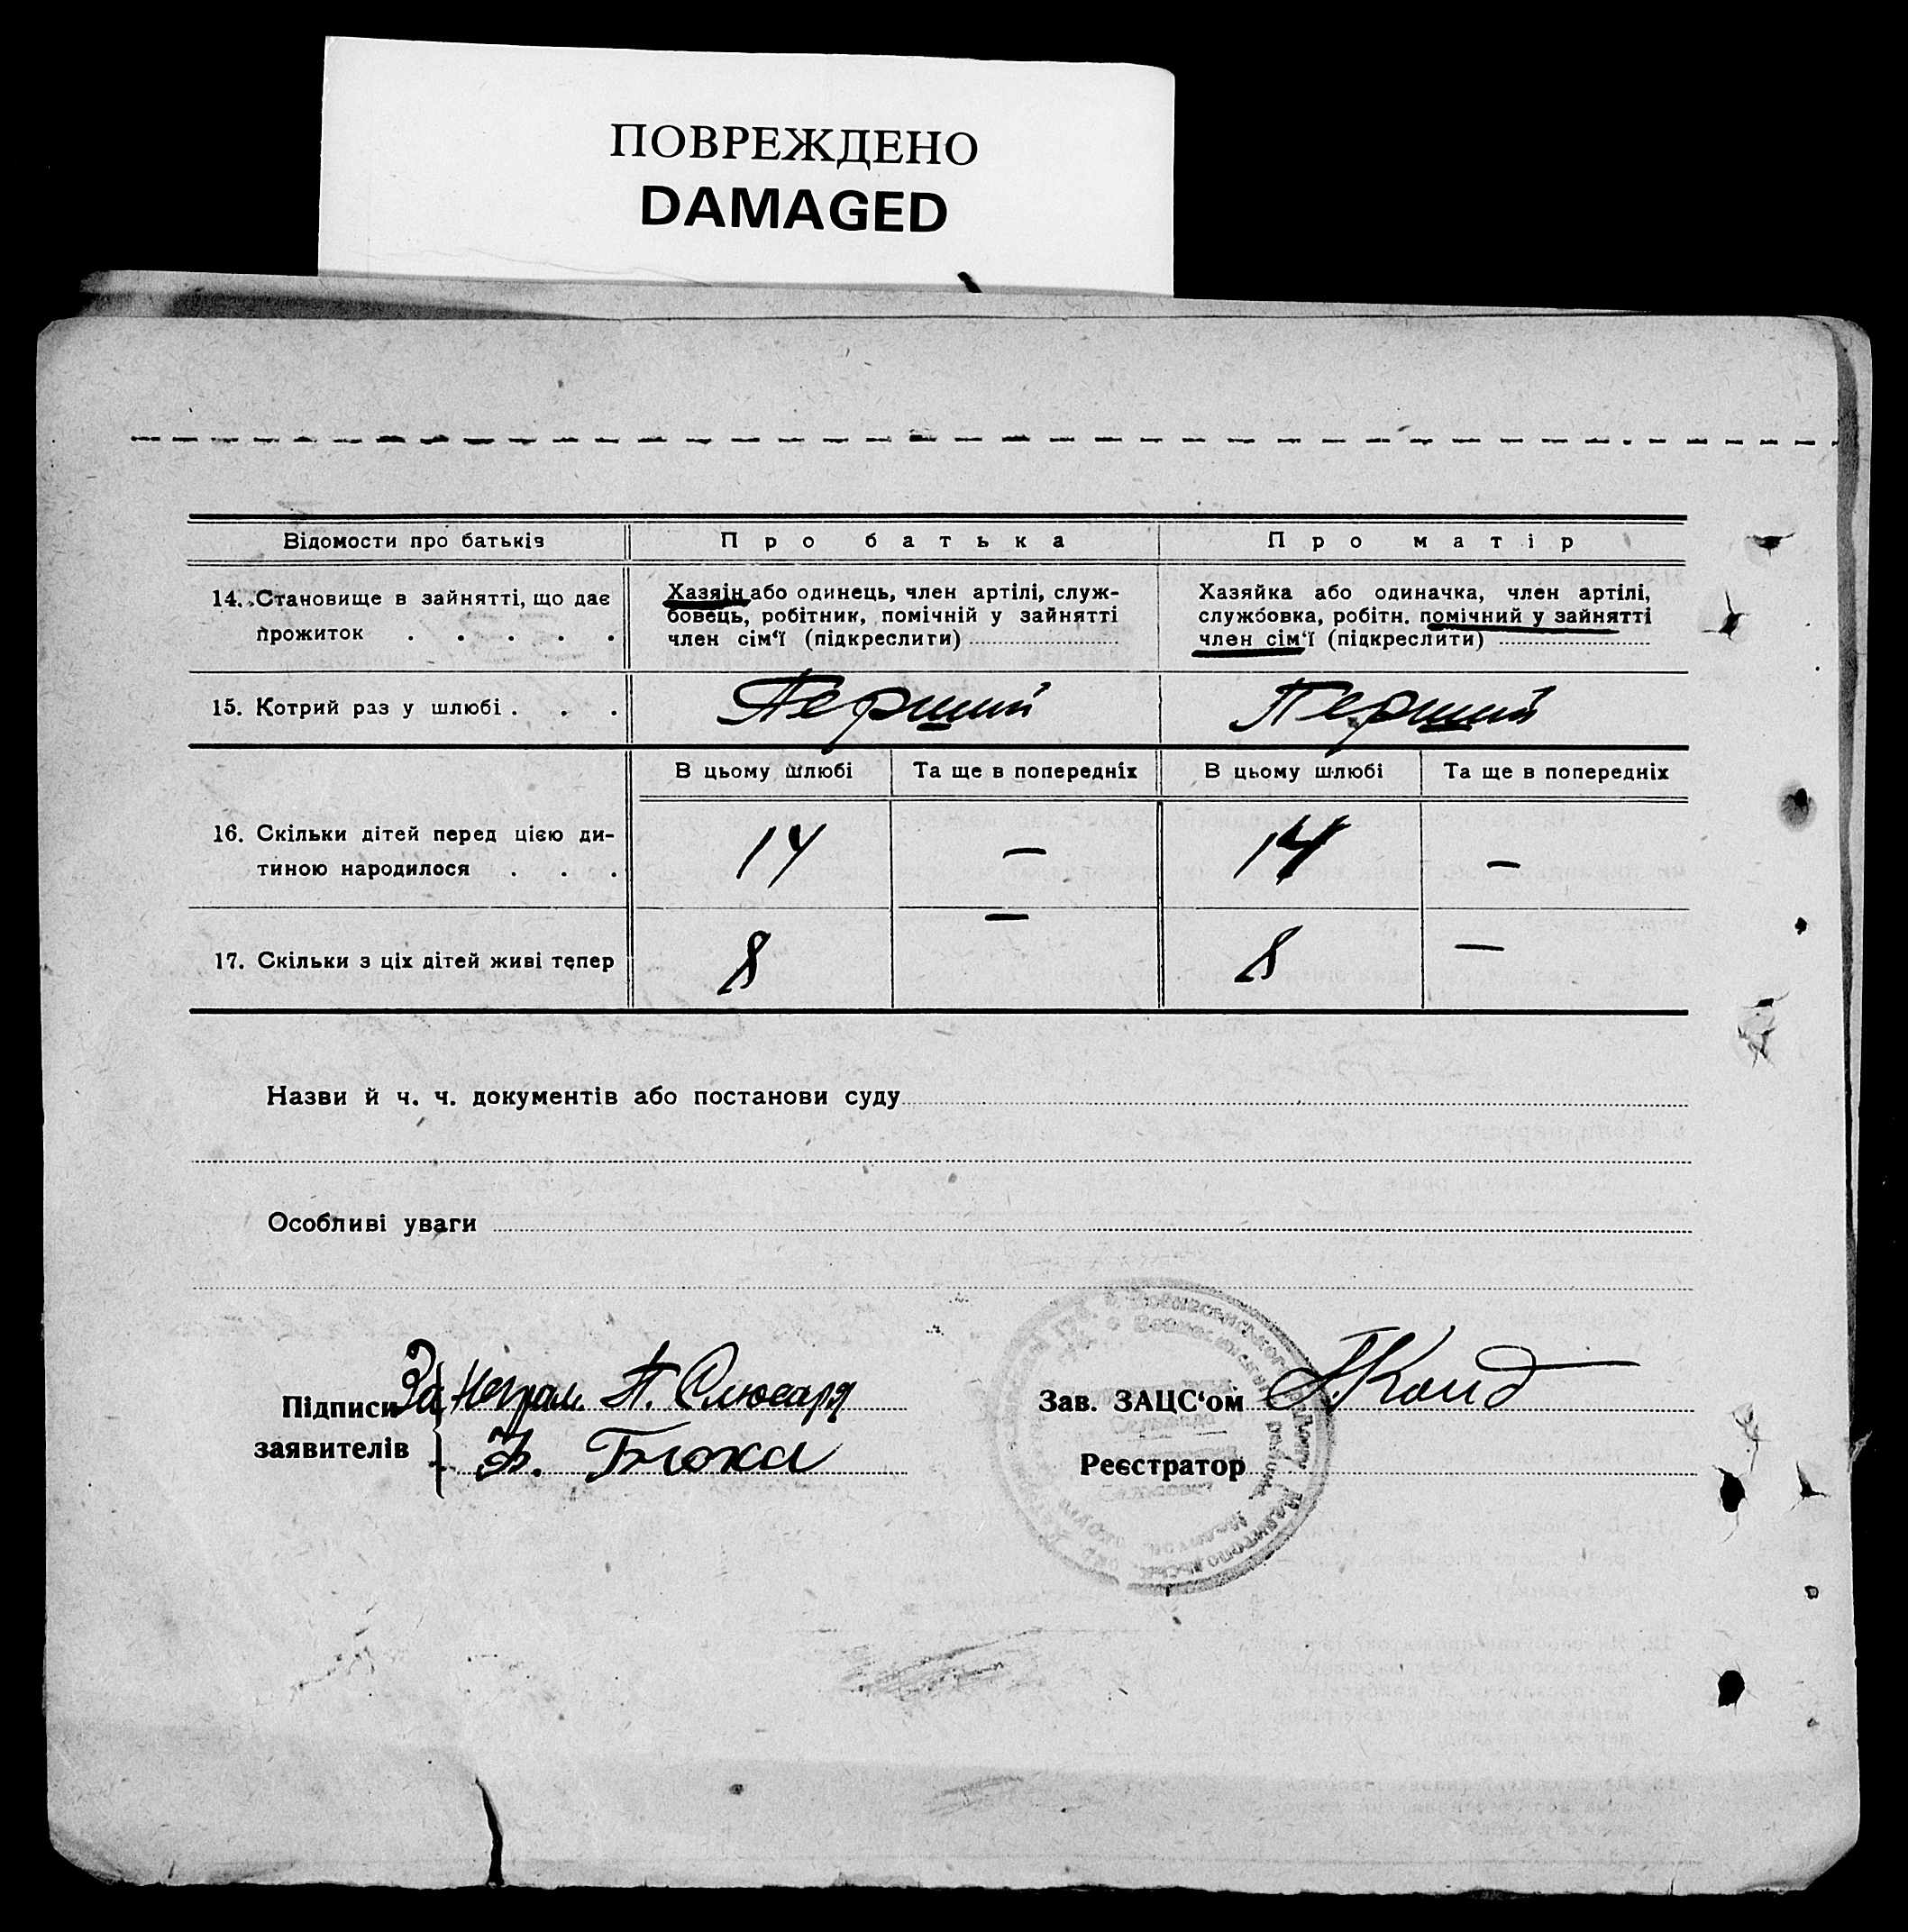 ПОВРЕЖДЕНО
DAMAGED
Відомости про батьків
Про батька
Про матір
14. Становище в зайнятті, що дає
прожиток . . . . .
Хазяїн або одинець, член артілі, служ-
бовець, робітник, помічній у зайнятті
член сім‘ї (підкреслити)
Хазяйка або одиначка, член артілі,
службовка, робітн. помічний у зайнятті
член сім‘ї (підкреслити)
15. Котрий раз у шлюбі . . .
Перший
Перший
В цьому шлюбі
Та ще в попередніх
В цьому шлюбі
Та ще в попередніх
16. Скільки дітей перед цією ди-
тиною народилося . . .
14
—
14
—
17. Скільки з ціх дітей живі тепер
8
—
8
—
Назви й ч. ч. документів або постанови суду
Особливі уваги
Підписи
заявителів
За Неграм. П. Слюсаря
Зав. ЗАЦС‘ом
Реєстратор
Сельрада